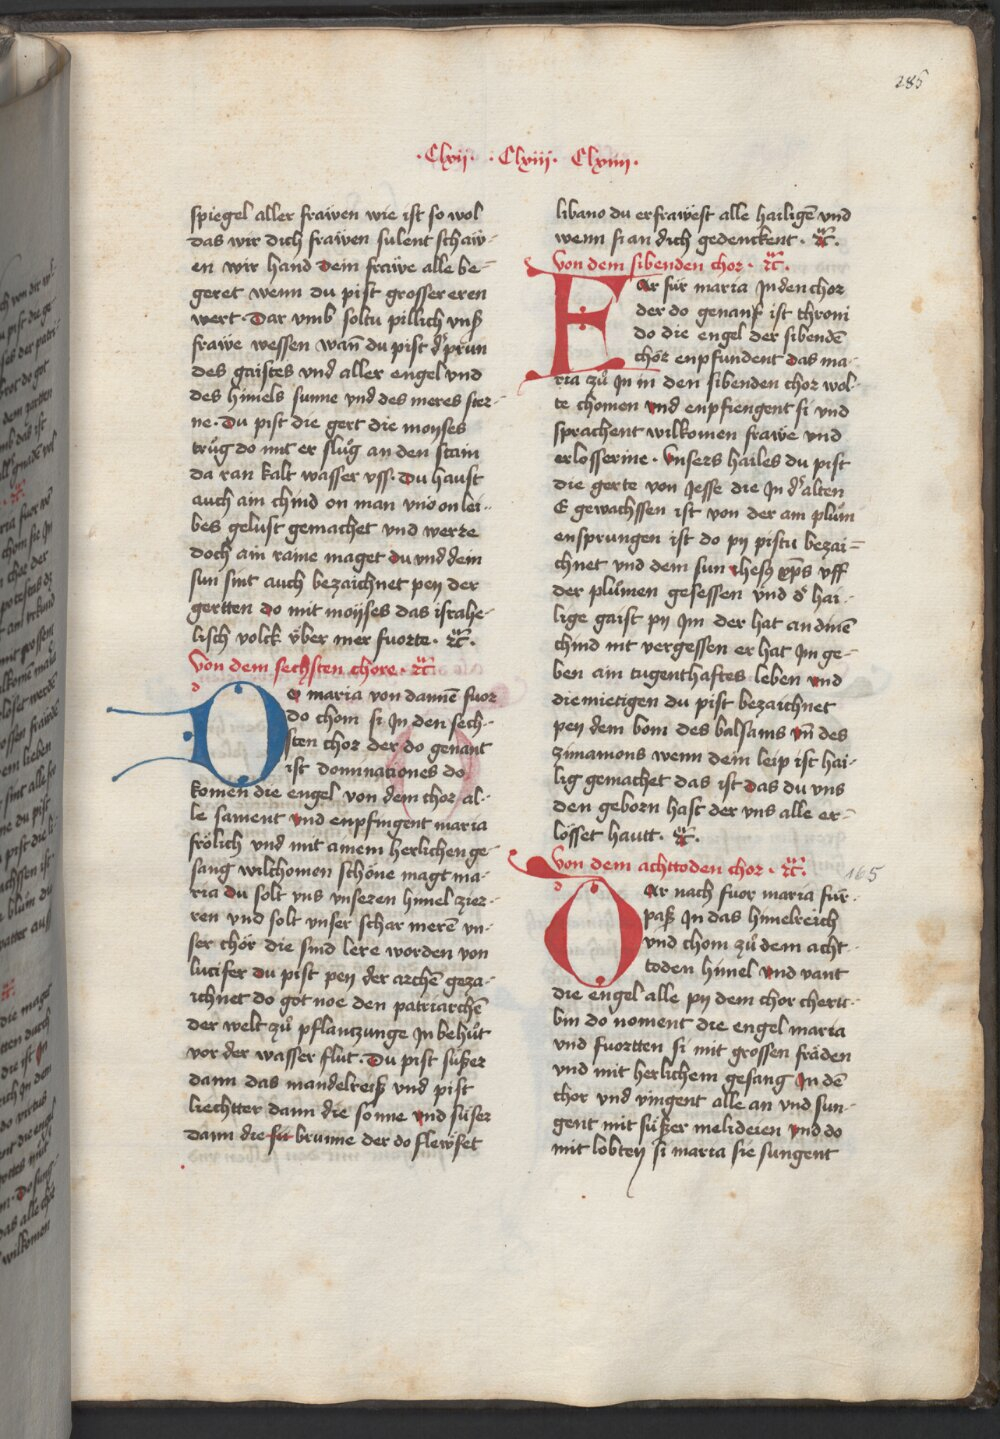 285
·Clxij· ·Clxiij· Clxiiij·
spiegel aller frawen wie ist so wol
das wir dich frawen sulent schaw-
en wir hand dein frawe alle be-
geret wenn du pist grosser eren
wert · Dar vmb soltu pillich vnß
frawe wessen wañ du pist d͛ prun
des gaistes vnd aller engel vnd
des himels sunne vnd des meres ster-
ne · Du pist die gert die moyses
trůg do mit er slůg an den stain
da ran kalt wasser vss · Du haust
auch ain chind on man vnd on lei-
bes gelust gemachet vnd werde
doch ain raine maget du vnd dein
sun sint auch bezaichnet pey der
gertten do mit moyses das israhe-
lisch volck v̈ber mer fuorte · ꝛc̈ ·
Von dem sechsten chore · ꝛc̈
Do maria von dannē fuor
do chom si Jn den sech-
sten chor der do genant
ist dominationes do
komen die engel von dem chor al-
le sament vnd enpfingent maria
frölich vnd mit ainem herlichen ge-
sang wilchomen schöne magt ma-
ria du solt vns vnseren himel zier-
ren vnd solt vnser schar merē vn-
ser chör die sind lere worden von
lucifer du pist pey der archē geza-
ichnet do got noe den patriarchē
der welt zů pflanczunge Jn behůt
vor der wasser flut · Du pist süßer
dann das mandelreiß vnd pist
liechtter dann die sonne vnd süser
dann die brunne der do flewset
libano du erfrawest alle hailigē vnd
wenn si an dich gedenckent · ꝛc̈ ·
Von dem sibenden chor · ꝛc̈ ·
Er für maria Jn den chor
der do genanß ist throni
do die engel der sibendē
chör enpfundent das ma-
ria zů Jn in den sibenden chor wol-
te chomen vnd enpfiengent si vnd
sprachent wilkomen frawe vnd
erlosserine · Vnsers hailes du pist
die gerte von Jesse die Jn d͛ alten
E gewachssen ist von der am plům
ensprungen ist do py pistu bezai-
chnet vnd dem sun Jhesꝰ xp̄s vff
der plůmen gesessen vnd d͛ hai-
lige gaist py Jm der hat an dinē
chind nit vergessen er hat Jm ge-
ben ain tugenthaftes leben vnd
diemietigen du pist bezaichnet
pey dem bom des balsams vn̄ des
zimamons wenn dein leip ist hai-
lig gemachet das ist das du vns
den geborn hast der vns alle er-
lösset hautt · ꝛc̈ ·
Von dem achttoden chor · ꝛc̈ · 165
Dar nach fuor maria für
paß Jn das himelreich
vnd chom zů dem acht-
toden himel vnd vant
die engel alle py dem chor cheru-
bin do noment die engel maria
vnd fuortten si mit grossen fräden
vnd mit herlichem gesang Jn dē
chor vnd vingent alle an vnd sun-
gent mit süßer melideien vnd do
mit lobten si maria sie sungent